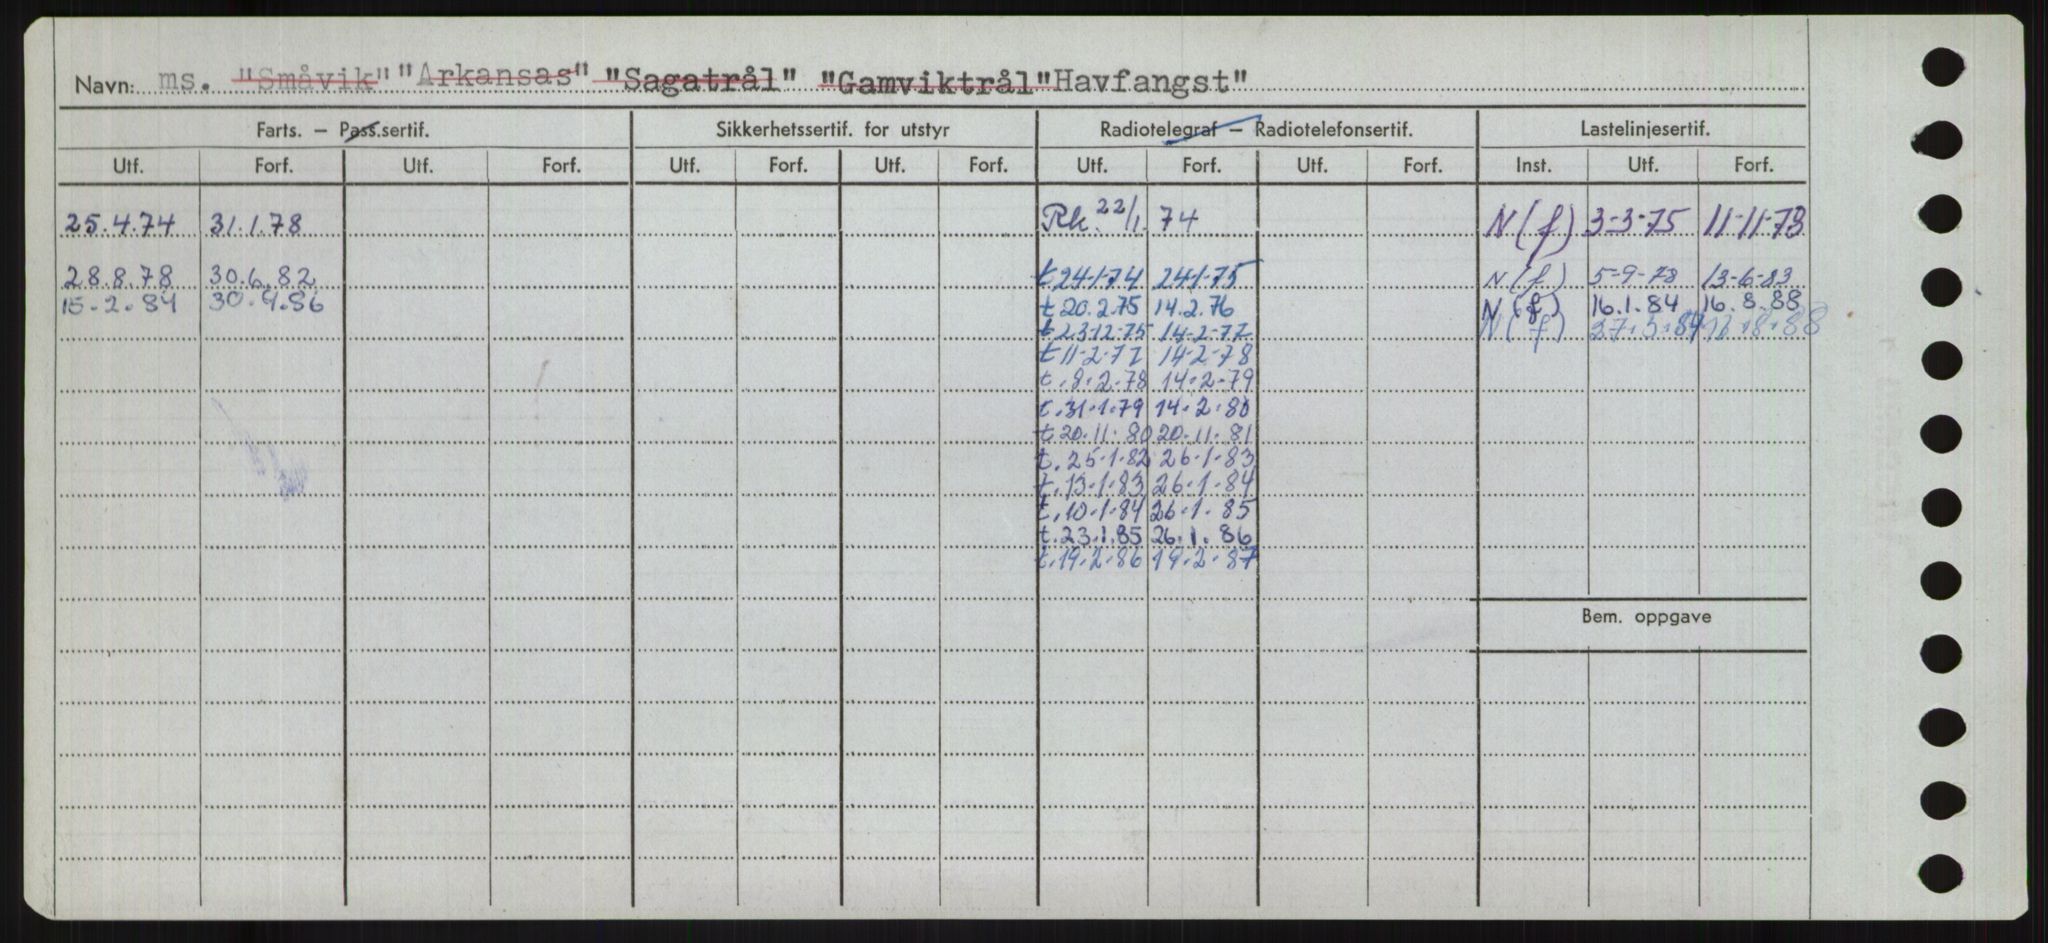 Navn: ms. "Småvik" "Arkansas" "Sagatrål" "Gamviktrål" Havfangst"
Farts. — Pass.sertif. Sikkerhetssertif. for utstyr Radiotelegraf — Radiotelefonsertif. Lastelinjesertif.
Utf. Forf. Utf. Forf. Utf. Forf. Utf. Forf. Utf. Forf. Utf. Forf. Inst. Utf. Forf.
25.4.74 31.1.78 Rk. 22/1. 74 N(f) 3-3-75 11-11-78
28.8.78 30.6.82 t 24-1-74 24-1-75 N(f) 5-9-78 13-6-83
15.2.84 30.9.86 t 20.2.75 14.2.76 N(f) 16.1.84 16.8.88
t 23-12-75 14-2-77 N(f) 27.3.84 16.8.88
t 11-2-77 14-2-78
t. 8.2.78 14.2-79
t. 31.1.79 14.2.80
t 20.11.80 20.11.81
t. 25.1.82 26.1.83
t. 13.1.83 26.1.84
t. 10.1.84 26.1.85
t. 23.1.85 26.1.86
t. 19.2.86 19.2.87
Bem. oppgave